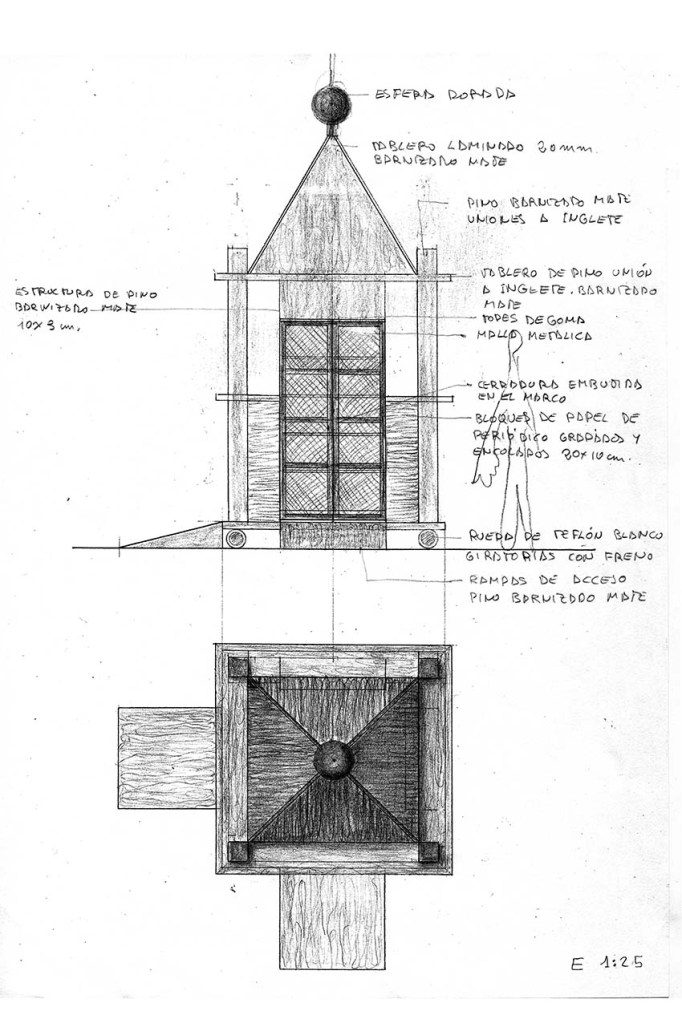 ESFERA DORADA
TABLERO LAMINADO 20mm.
BARNIZADO MATE
PINO BARNIZADO MATE
UNIONES A INGLETE
TABLERO DE PINO UNIÓN
A INGLETE. BARNIZADO
MATE
TOPES DE GOMA
MALLA METALICA
ESTRUCTURA DE PINO
BARNIZADO MATE
10x3 cm.
CERRADURA EMBUTIDA
EN EL MARCO
BLOQUES DE PAPEL DE
PERIÓDICO GRAPADOS Y
ENCOLADOS 30x10 cm.
RUEDA DE TEFLÓN BLANCO
GIRATORIAS CON FRENO
RAMPAS DE ACCESO
PINO BARNIZADO MATE
E 1:25